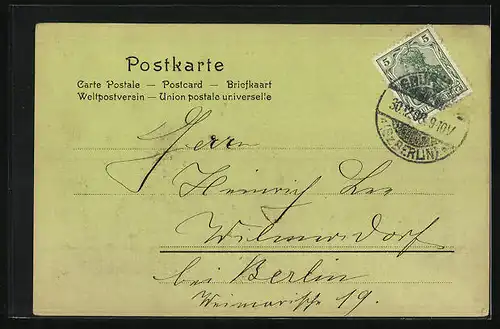 Postkarte
Carte Postale — Postcard — Briefkaart
Weltpostverein — Union postale universelle
5 5
30.12.02. 9-10V.
(BZ.BERLIN)
Herrn
Heinrich
Wilmersdorf
bei Berlin
Weimarische 19.